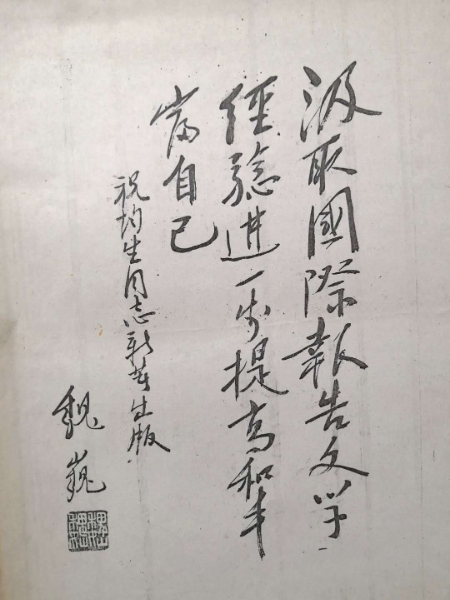 汲取國際報告文学
經驗進一步提高和丰
富自己
祝均生同志新著出版
魏巍